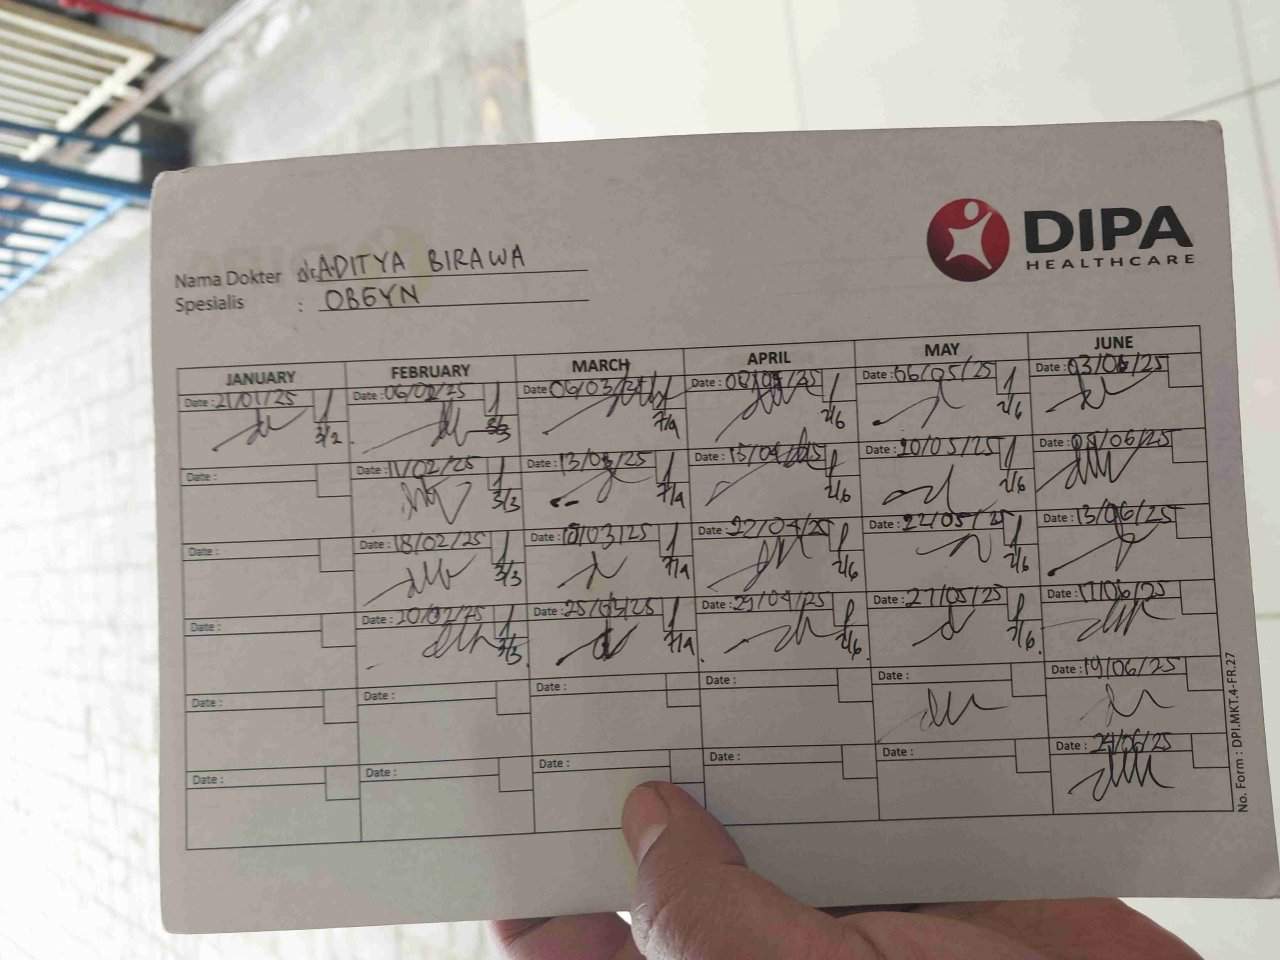 DIPA
HEALTHCARE
Nama Dokter dr. ADITYA BIRAWA
Spesialis : OBGYN
JANUARY FEBRUARY MARCH APRIL MAY JUNE
Date : 21/01/25 Date : 06/02/25 Date 06/03/25 Date : 08/04/25 Date : 06/05/25 Date : 03/06/25
3/2 3/3 7/4 2/6 2/6
Date : Date : 11/02/25 Date : 13/03/25 Date : 15/04/25 Date : 20/05/25 Date :
3/3 7/4 2/6 2/6
Date : Date : 18/02/25 Date : 18/03/25 Date : 22/04/25 Date : 22/05/25 Date : 13/06/25
3/3 7/4 2/6 2/6
Date : Date : 20/02/25 Date : 25/03/25 Date : 29/04/25 Date : 27/05/25 Date : 17/06/25
3/3 7/4 2/6 2/6
Date : Date : Date : Date : Date : Date : 19/06/25
Date : Date : Date : Date : Date : Date : 24/06/25
No. Form : DPI.MKT.4-FR.27